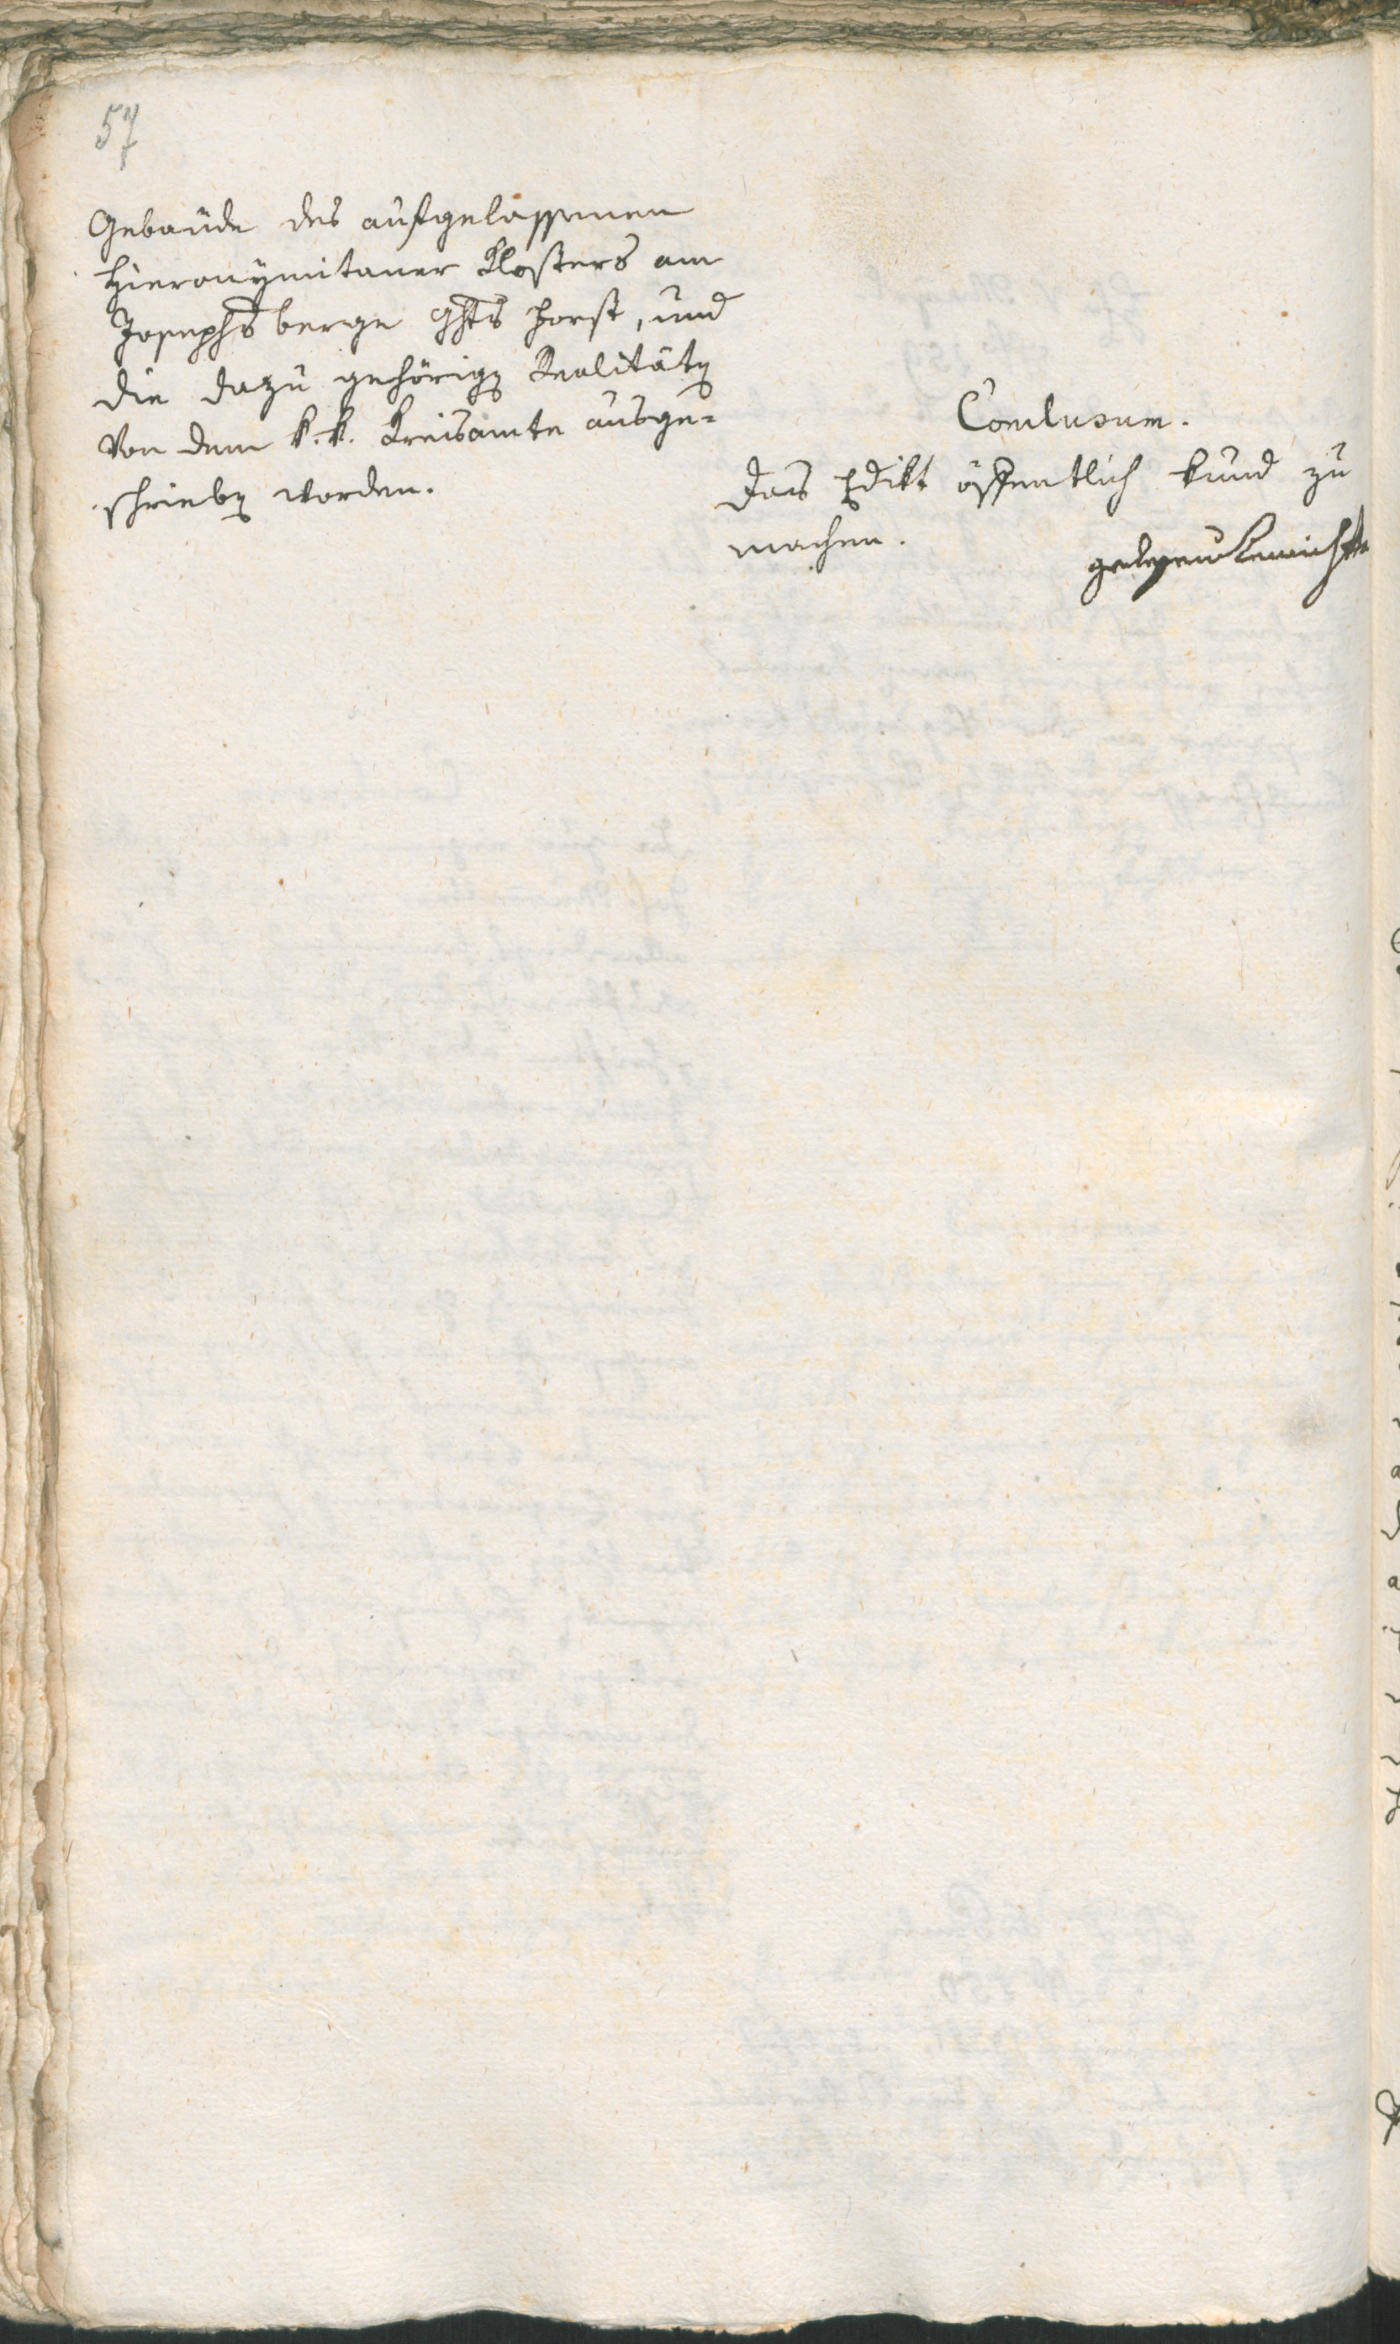 57
Gebäude des aufgelassenen
Hieronymitaner Klosters am
Josephsberge Ghts Forst, und
die dazu gehörigen Realitäten
von dem k. k. Kreisamte ausge-
schrieben worden.
Conclusum.
Das Edikt öffentlich kund zu
machen.
gelesen